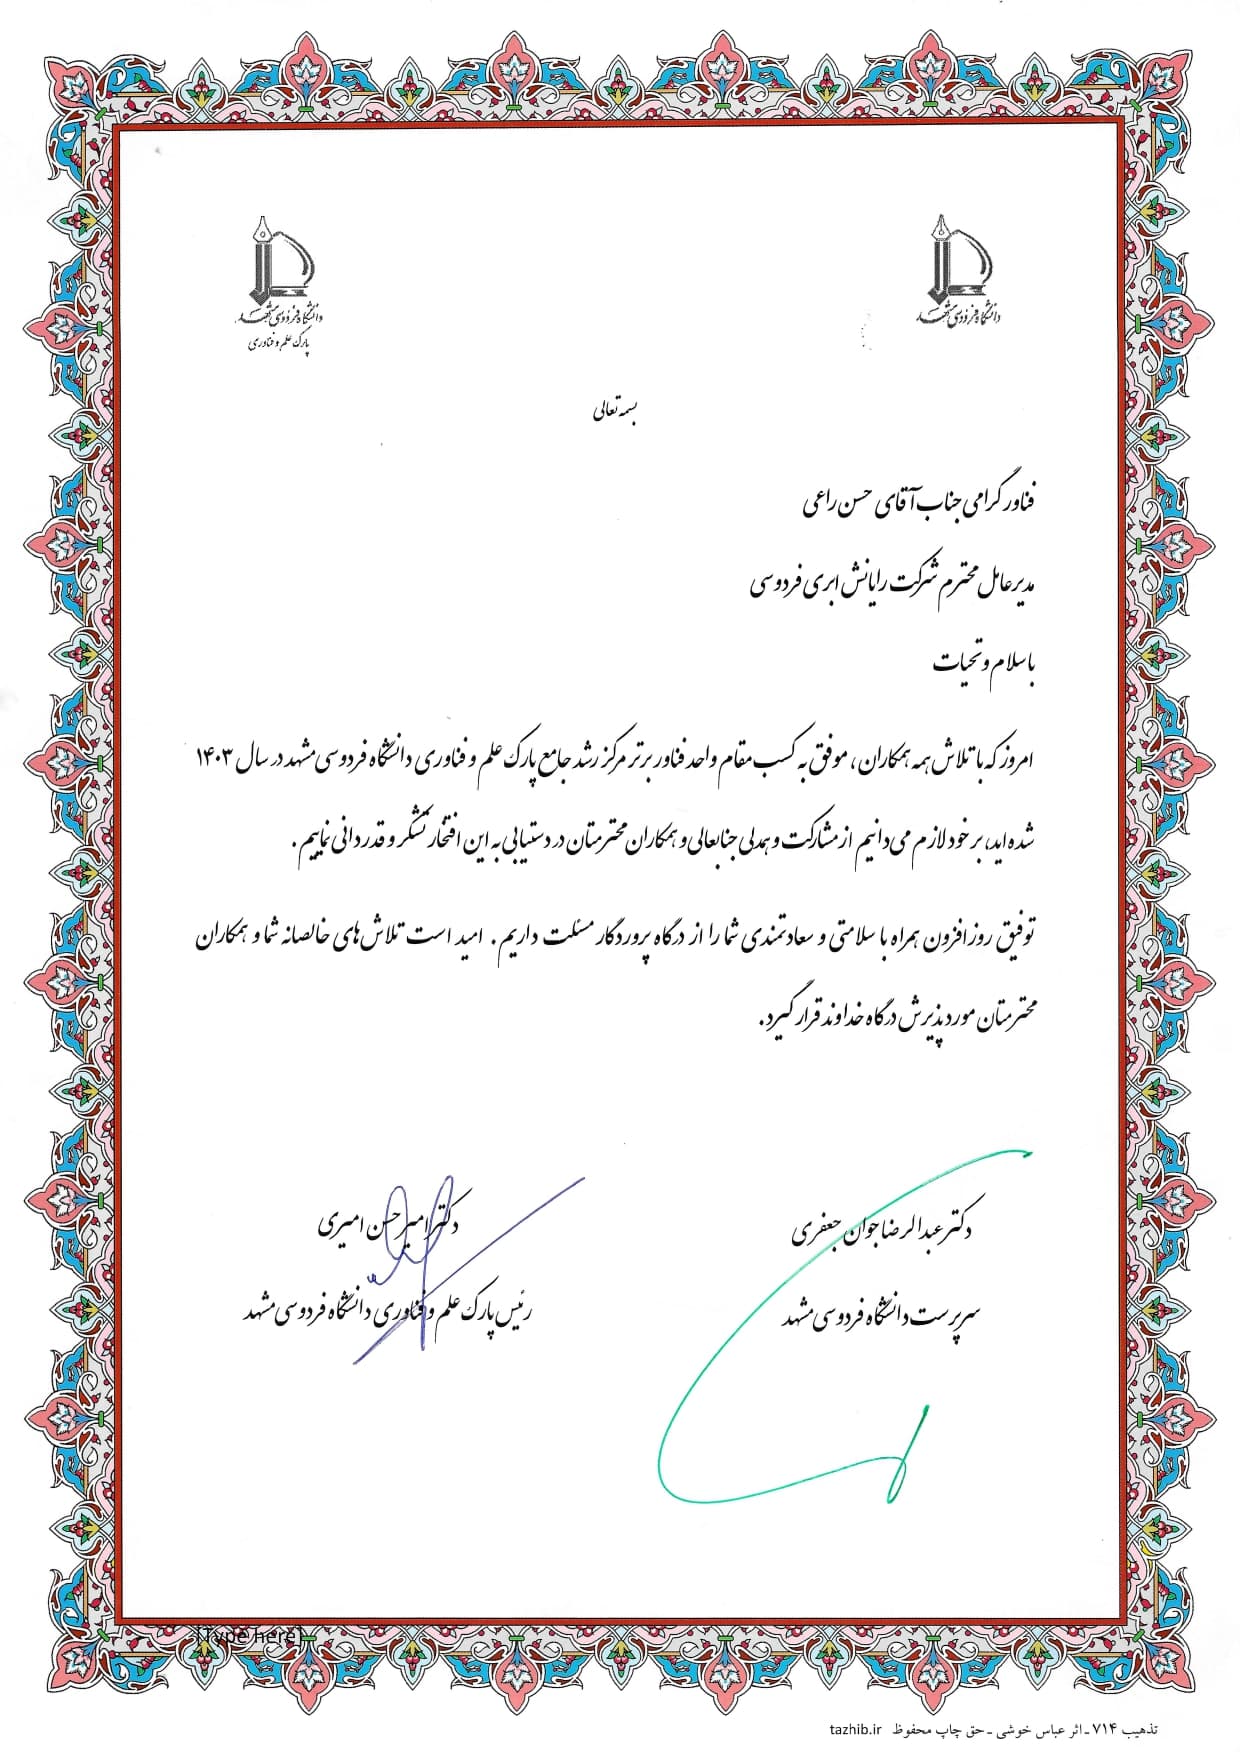 دانشگاه فردوسی مشهد
دانشگاه فردوسی مشهد
پارک علم و فناوری
بسمه تعالی
فناور گرامی جناب آقای حسن راعی
مدیرعامل محترم شرکت رایانش ابری فردوسی
با سلام و تحیات
امروز که با تلاش همه همکاران، موفق به کسب مقام واحد فناور برتر مرکز رشد جامع پارک علم و فناوری دانشگاه فردوسی مشهد در سال ۱۴۰۳
شده اید، بر خود لازم می دانیم از مشارکت و همدلی جنابعالی و همکاران محترمتان در دستیابی به این افتخار تشکر و قدردانی نماییم.
توفیق روزافزون همراه با سلامتی و سعادتمندی شما را از درگاه پروردگار مسئلت داریم. امید است تلاش های خالصانه شما و همکاران
محترمتان مورد پذیرش درگاه خداوند قرار گیرد.
دکتر عبدالرضا جوان جعفری
سرپرست دانشگاه فردوسی مشهد
دکتر امیرحسن امیری
رئیس پارک علم و فناوری دانشگاه فردوسی مشهد
[Type here]
تذهیب ۷۱۴ ـ اثر عباس خوشی ـ حق چاپ محفوظ tazhib.ir